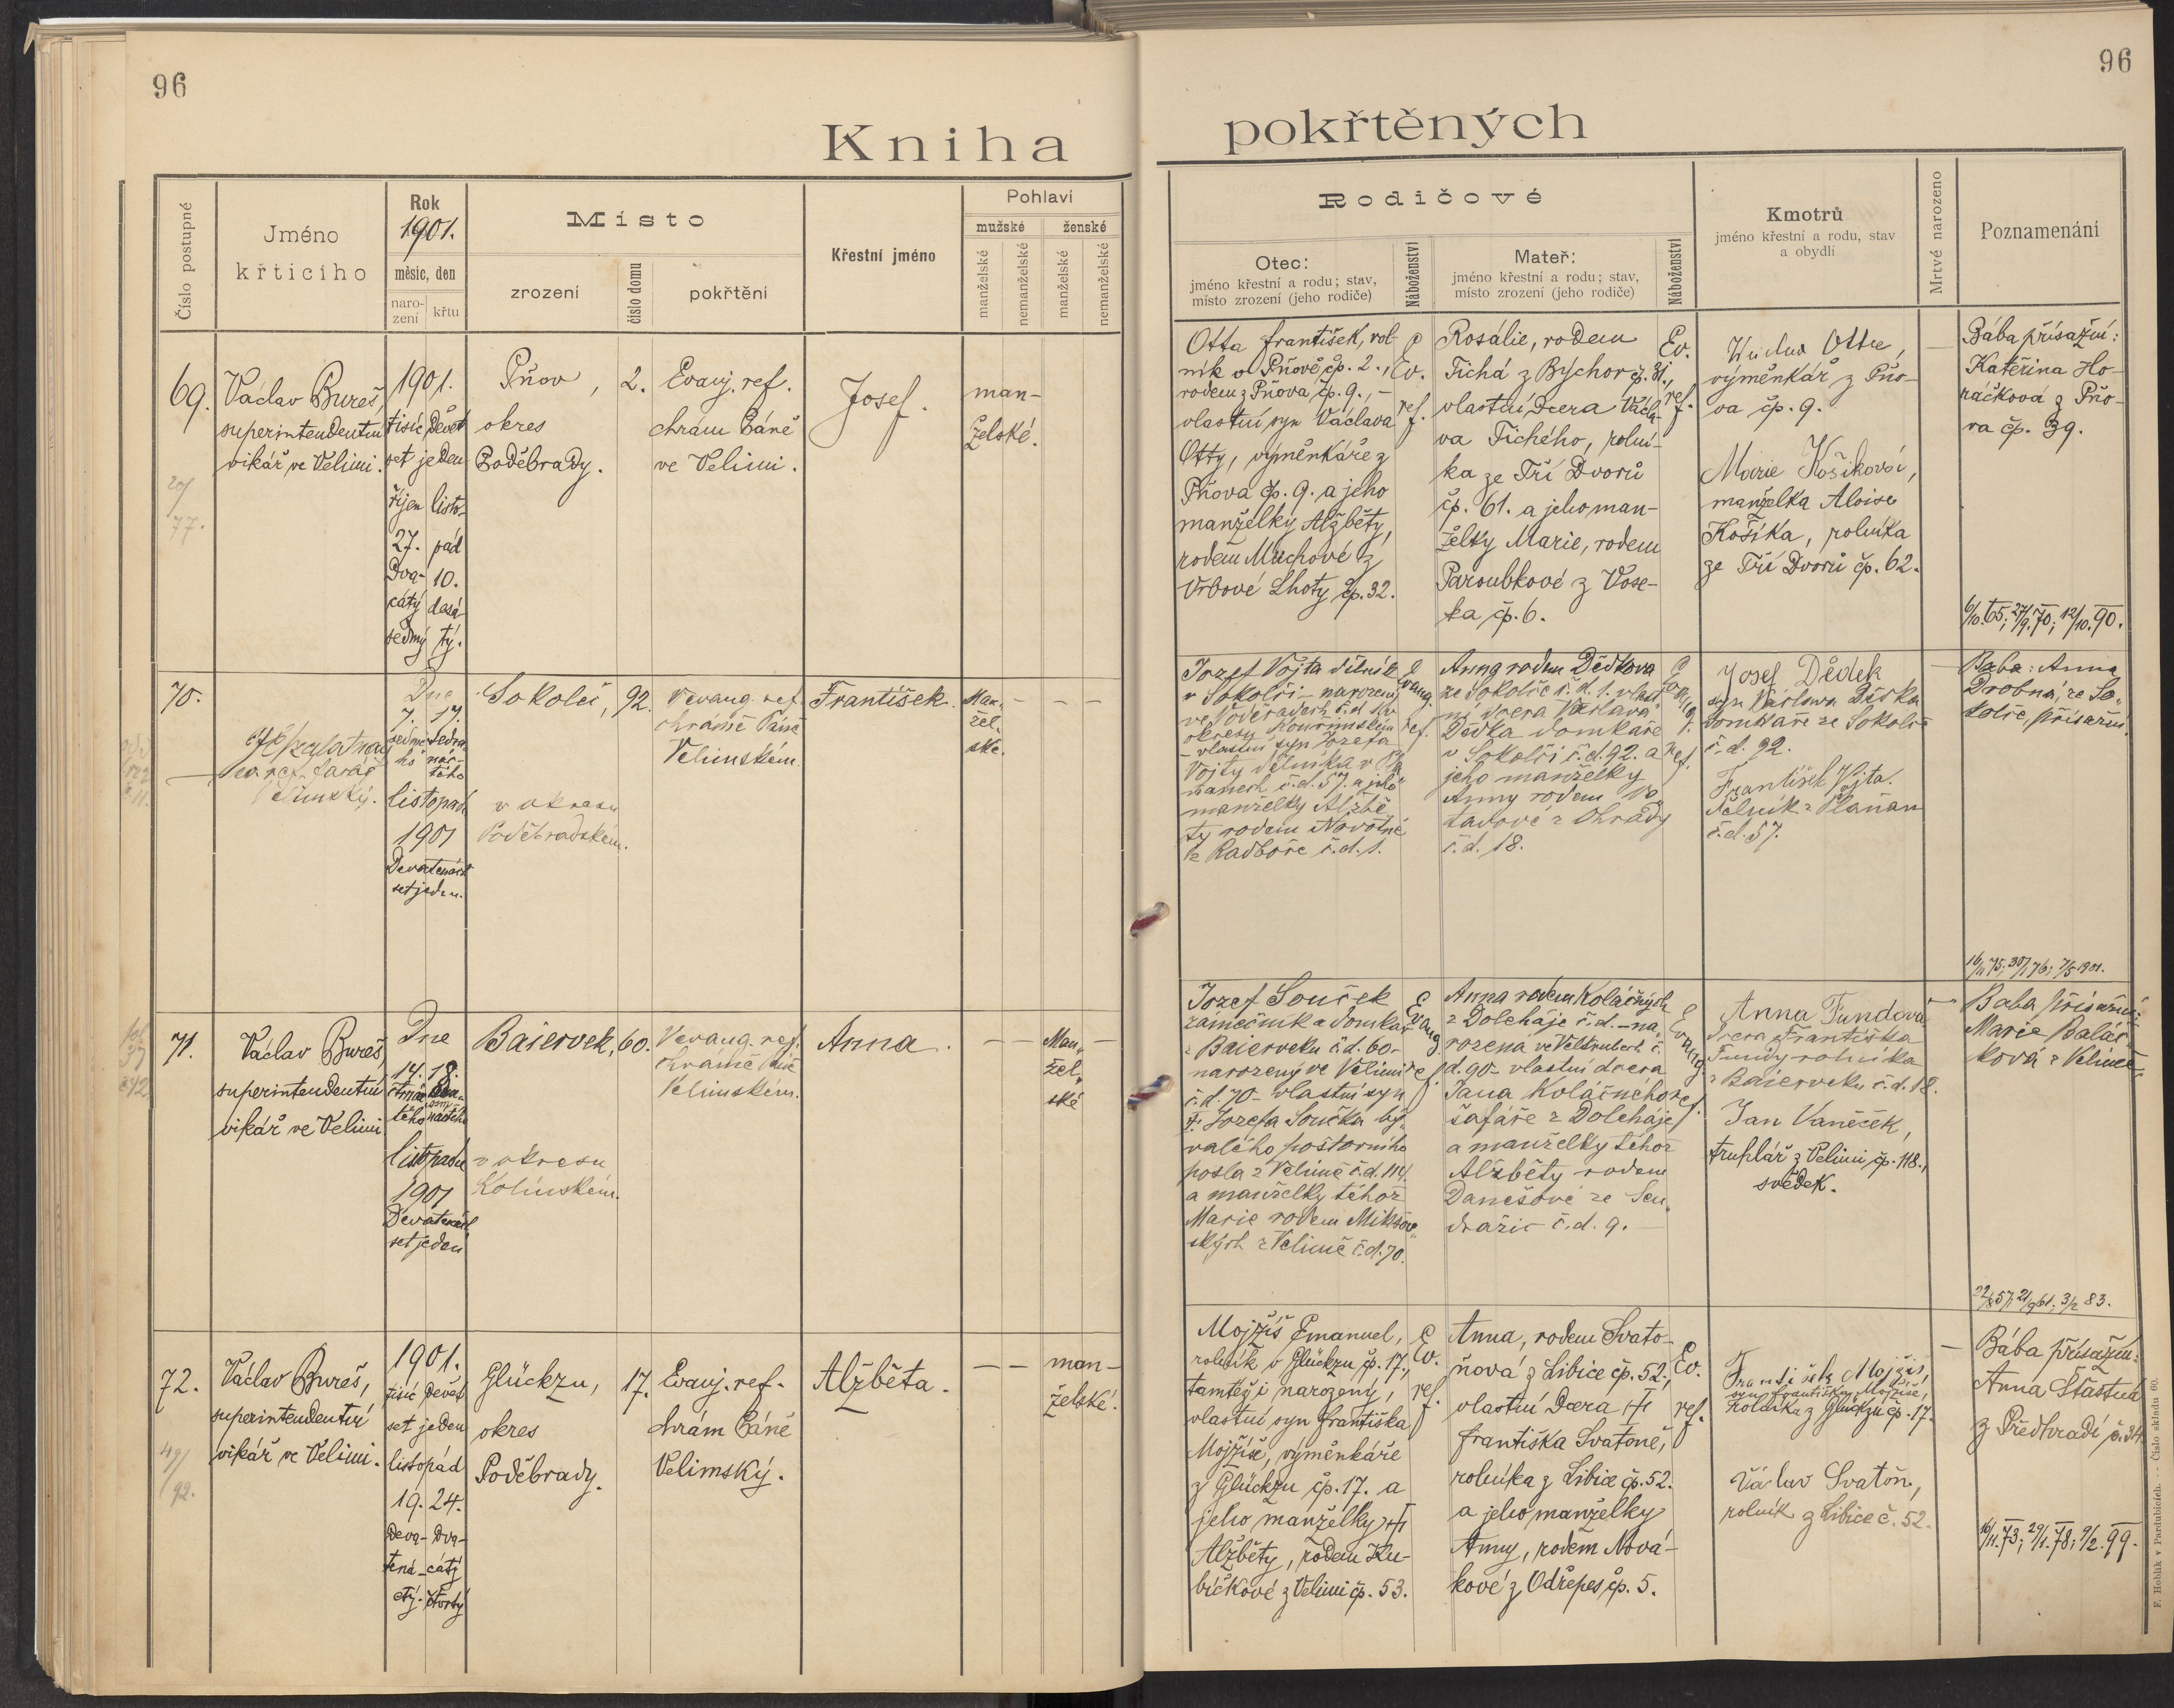 96
96
Kniha
pokřtěných
Číslo postupné
Jméno
křticího
Rok
1901.
měsíc, den
naro-
zení
křtu
Místo
zrození
číslo domu
pokřtění
Křestní jméno
Pohlaví
mužské
ženské
manželské
nemanželské
manželské
nemanželské
Rodičové
Otec:
jméno křestní a rodu; stav,
místo zrození (jeho rodiče)
Náboženství
Mateř:
jméno křestní a rodu; stav,
místo zrození (jeho rodiče)
Náboženství
Kmotrů
jméno křestní a rodu, stav
a obydlí
Mrtvé narozeno
Poznamenání
69.
Václav Bureš,
superintendentní
vikář ve Velimi.
1901.
tisíc devět
set jeden
říjen listo-
27. pád
Dva- 10.
cátý desá-
sedmý tý.
Pňov, 2.
okres
Poděbrady.
Evanj. ref.
chrám Páně
ve Velimi.
Josef.
man-
želské.
Otta František, rol-
ník v Pňově čp. 2.,
rodem z Pňova, čp. 9., –
vlastní syn Václava
Otty, výměnkáře z
Pňova čp. 9. a jeho
manželky Alžběty,
rodem Muchové z
Vrbové Lhoty čp. 32.
Ev.
ref.
Rosálie, rodem
Tichá z Bychor čp. 31.,
vlastní dcera Václa-
va Tichého, rolní-
ka ze Tří Dvorů
čp. 61. a jeho man-
želky Marie, rodem
Paroubkové z Vose-
ka čp. 6.
Ev.
ref.
Otta,
výměnkář z Pňo-
va čp. 9.
Marie Košíková,
manželka Aloise
Košíka, rolníka
ze Tří Dvorů čp. 62.
Bába přísažní:
Kateřina Ho-
ráčková z Pňo-
va čp. 39.
6/10. 65; 27/9. 70; 12/10. 90.
20/
77.
70.
ev. ref. farář
Velimský.
Dne
7. 17.
sedmé- sedm-
ho nác-
tého
listopadu
1901
Devatenáct
set jeden.
Sokoleč, 92.
v okresu
Poděbradském.
V evang. ref.
chrámě Páně
Velimském.
František.
Man-
žel-
ské.
– – –
Jozef Vojta dělník
v Sokolči – narozený
okresu Kouřimském
– vlastní syn Jozefa
Vojty dělníka v Pla-
ňanech č. d. 57. a jeho
manželky Alžbě-
ty rodem Novotné
z Radboře č. d. 1.
Evang.
ref.
Anna rodem Dědkova
ze Sokolče č. d. 1. vlast-
ní dcera Václava
Dědka domkáře
v Sokolči č. d. 92. a
jeho manželky
Anny rodem Vo-
tavové z Ohrady
č. d. 18.
Evang.
ref.
Josef Dědek
syn Václava Dědka
domkáře ze Sokolče
č. d. 92.
František Vojta.
dělník z Plaňan
č. d. 57.
Baba: Anna
Drobná, ze So-
kolče, přísažní.
16/11 75; 30/1 76; 7/5 1901.
71.
Václav Bureš,
superintendentní
vikář ve Velimi
Dne
14. 18.
listopadu
1901
Devatenáct
set jeden
Baiervek, 60.
v okresu
Kolínském.
V evang. ref.
chrámě Páně
Velimském.
Anna.
– –
Man-
žel-
ské
–
Jozef Souček
zámečník a domkář
z Baierveku č. d. 60 –
narozený ve Velimi
č. d. 70 – vlastní syn
Jozefa Součka bý-
valého poštovního
posla z Velimě č. d. 114.
a manželky téhož
Marie rodem Mikšov-
ských z Velimě č. d. 70.
Evang.
ref.
Anna rodem Koláčných
z Dolcháje č. d. – na-
rozena ve Veltrubech č.
d. 90 – vlastní dcera
Jana Koláčného
šafáře z Dolcháje
a manželky téhož
Alžběty rodem
Danešové ze Sen-
dražic č. d. 9. –
Evang.
ref.
Anna Fundová
dcera Františka
Fundy rolníka
z Baierveku č. d. 18.
Jan Vaněček,
truhlář z Velimi čp. 118.,
svědek.
Baba přísažní:
Marie Baláč-
ková z Velimě.
22/8 57; 21/9 61; 3/2 83.
72.
Václav Bureš,
superintendentní
vikář ve Velimi.
1901.
tisíc devět
set jeden
listopád
19. 24.
Deva- Dva-
tená- cátý
ctý. čtvrtý
Glückzu, 17.
okres
Poděbrady.
Evanj. ref.
chrám Páně
Velimský.
Alžběta.
– –
man-
želské.
Mojžíš Emanuel,
rolník v Glückzu čp. 17.,
tamtéž i narozený,
vlastní syn Františka
Mojžíše, výměnkáře
z Glückzu čp. 17. a
jeho manželky
Alžběty, rodem Ku-
bíčkové z Velimi čp. 53.
Ev.
ref.
Anna, rodem Svato-
ňová z Libice čp. 52.,
vlastní dcera
Františka Svatoně,
rolníka z Libice čp. 52.
a jeho manželky
Anny, rodem Nová-
kové z Odřepes čp. 5.
Ev.
ref.
František Mojžíš,
syn Františka Mojžíše,
rolníka z Glückzu čp. 17.
Václav Svatoň,
rolník z Libice č. 52.
Bába přísažní:
Anna Šťastná
z Předhradí č. 34.
16/11. 73; 29/1. 78; 9/2. 99.
49/
92.
F. Hoblík v Pardubicích. — Číslo skladu 60.